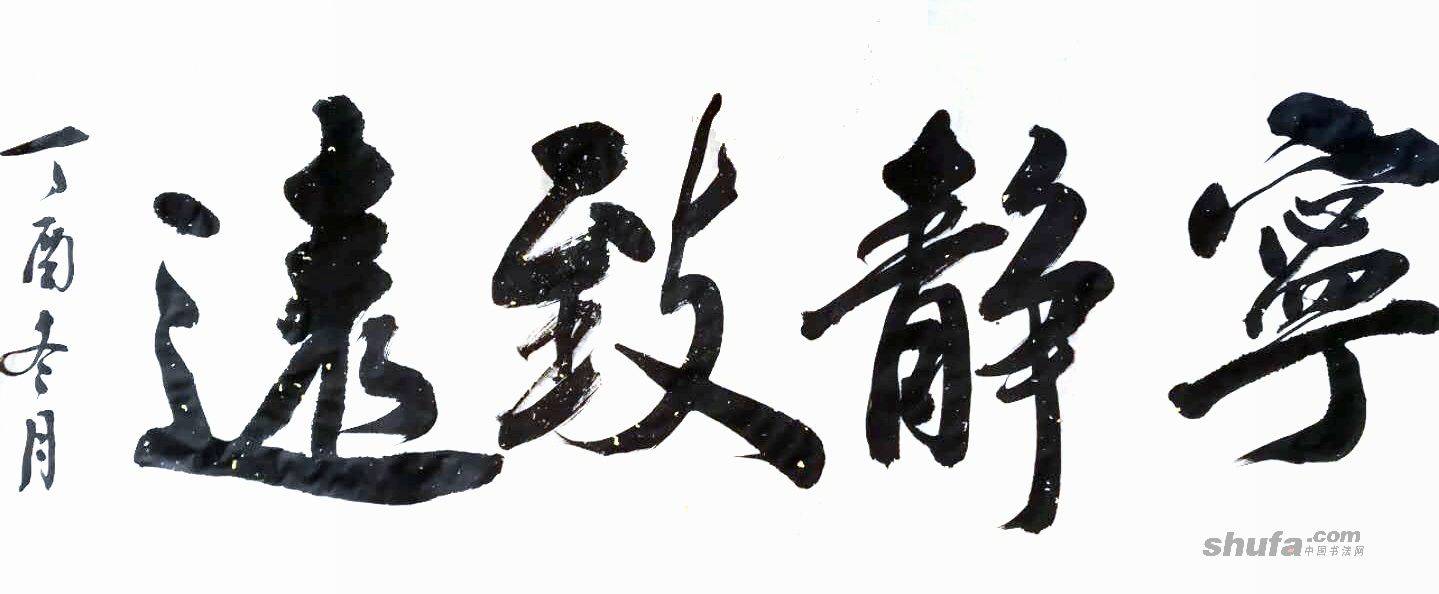 寧靜致遠
丁酉冬月
shufa.com
中国书法网